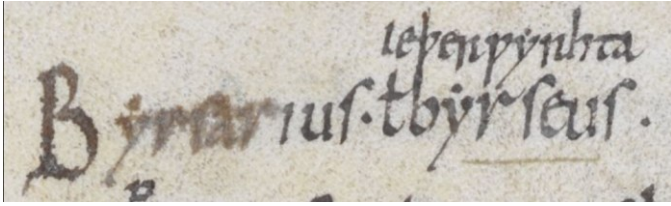 leþerƿyrhta
Byrsarius· ł byrseus.